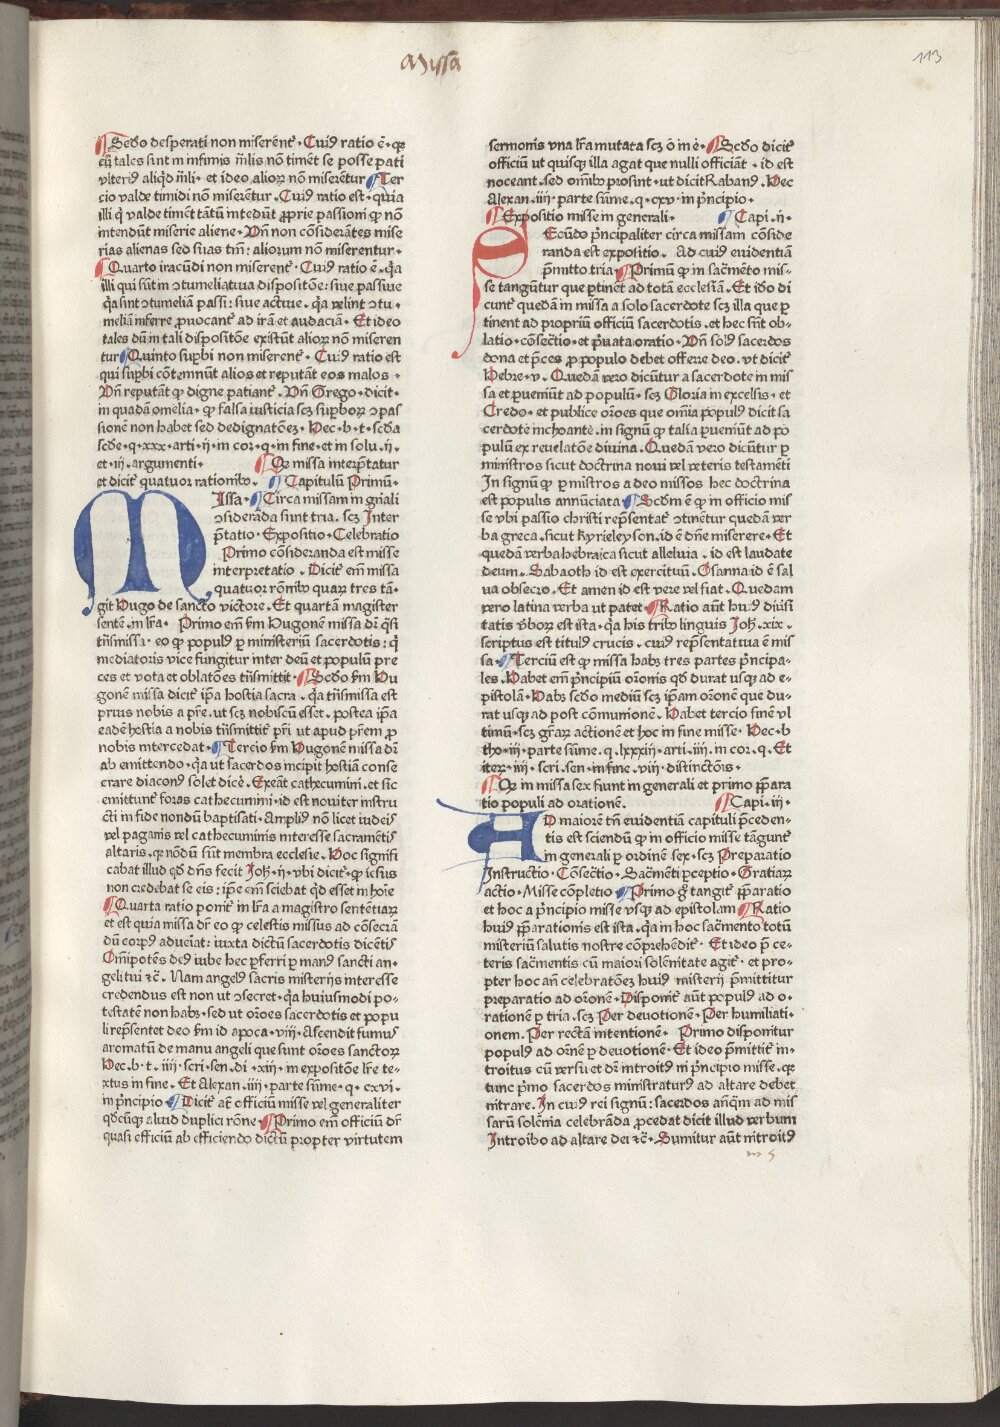 Missa
113
¶Scd̄o desperati non miserent᷑. Cuiꝰ ratio ē. qꝛ
cū tales sunt in infimis m̄lis nō timēt se posse pati
vlteriꝰ aliqd̓ m̄li. et ideo alioꝝ nō miserētur ¶Ter
cio valde timidi nō miserētur. Cuiꝰ ratio est. quia
illi q̇ valde timēt tātū intēdūt ꝓprie passioni ꝙ nō
intendūt miserie aliene. Vn̄ non cōsiderātes mise
rias alienas sed suas tm̄: aliorum nō miserentur.
¶Quarto iracūdi non miserent᷑. Cuiꝰ ratio ē. q̇a
illi qui sūt in ↄtumeliatiua dispositōe: siue passiue
q̇a sint ↄtumeliā passi: siue actiue. q̇a velint ↄtu.
meliā inferre ꝓuocant᷑ ad irā et audaciā. Et ideo
tales dū in tali dispositōe existūt alioꝝ nō miseren
tur ¶Quinto suꝑbi non miserent᷑. Cuiꝰ ratio est
qui suꝑbi cōtemnūt alios et reputāt eos malos.
Vn̄ reputāt ꝙ digne patiant᷑. Vn̄ Grego. dicit.
in quadā omelia. ꝙ falsa iusticia scꝫ suꝑboꝝ ↄpas
sionē non habet sed dedignatōeꝫ. Hec. b. t. scd̄a
scd̄e. q. xxx. arti. ij. in cor. q. in fine. et in solu. ij.
et. iij. argumenti. ¶Qꝛ missa interp̄tatur
et dicit᷑ quatuor rationibꝰ. ¶Capitulū Primū.
Missa. ¶Circa missam in gn̄ali
ↄsiderāda sunt tria. scꝫ Inter
p̄tatio. Expositio. Celebratio
Primo cōsideranda est misse
interpretatio. Dicit᷑ em̄ missa
quatuor rōnibꝰ quaꝝ tres tā.
git Hugo de sancto victore. Et quartā magister
sentē. in lr̄a. Primo em̄ scd̄m Hugonē missa dr̄ q̄si
trāsmissa. eo ꝙ populꝰ ꝑ ministeriū sacerdotis: q̇
mediatoris vice fungitur inter deū et populū pre
ces et vota et oblatōes trāsmittit. ¶Scd̄o scd̄m Hu
gonē missa dicit᷑ ip̄a hostia sacra. q̇a trāsmissa est
prius nobis a p̄re. ut scꝫ nobiscū esset. postea ip̄a
eadē hostia a nobis trāsmittit᷑ p̄ri ut apud p̄rem ꝓ
nobis intercedat. ¶Tercio scd̄m Hugonē missa dr̄
ab emittendo. q̇a ut sacerdos incipit hostiā conse
crare diaconꝰ solet dicē. Exeāt cathecumini. et sic
emittunt᷑ foras cathecumini. id est nouiter instru
cti in fide nondū baptisati. Ampliꝰ nō licet iudeis
vel paganis vel cathecuminis interesse sacramētis
altaris. qꝛ nōdū sunt membra ecclesie. Hoc signifi
cabat illud qd̓ dn̄s fecit Joh̄. ij. vbi dicit᷑. ꝙ iesus
non credebat se eis: ip̄e em̄ sciebat qd̓ esset in hoīe
¶Quarta ratio ponit᷑ in lr̄a a magistro sentētiaꝝ
et est quia missa dr̄ eo ꝙ celestis missus ad cōsecrā
dū corpꝰ adueīat: iuxta dictū sacerdotis dicētis
Om̄ipotēs deꝰ iube hec ꝑferri ꝑ manꝰ sancti an.
geli tui ⁊c̄. Nam angelꝰ sacris misterijs interesse
credendus est non ut ↄsecret. q̇a huiusmodi po.
testatē non habꝫ. sed ut or̄oes sacerdotis et popu
li rep̄sentet deo scd̄m id apoca. viij. Ascendit fumus
aromatū de manu angeli que sunt or̄oes sanctoꝝ
Hec. b. t. iiij. scri. sen. di. xij. in expositōe lr̄e te.
xtus in fine. Et Alexan. iiij. parte sūme. q. cxvi.
in p̄ncipio. ¶Dicit᷑ at̄ officiū misse vel generaliter
qd̓cūqꝫ aliud duplici rōne. ¶Primo em̄ officiū dr̄
quasi efficiū ab efficiendo dictū ꝓpter virtutem
sermonis vna lr̄a mutata scꝫ o in e. ¶Scd̄o dicit᷑
officiū ut quisqꝫ illa agat que nulli officiāt. id est
noceant. sed om̄ibꝰ prosint. ut dicit Rabanꝰ. Hec
Alexan. iiij. parte sūme. q. cxv. in p̄ncipio.
¶Expositio misse in generali. ¶Capi. ij.
Secūdo p̄ncipaliter circa missam cōside
randa est expositio. Ad cuiꝰ euidentiā
p̄mitto tria. ¶Primū ꝙ in sacr̄mēto mis.
se tangūtur que ꝑtinēt ad totā ecclesiā. Et iō di
cunt᷑ quedā in missa a solo sacerdote scꝫ illa que ꝑ
tinent ad propriū officiū sacerdotis. et hec sūt ob.
latio. cōsectio. et p̄uata oratio. Vn̄ solꝰ sacerdos
dona et p̄ces ꝓ populo debet offerre deo. vt dicit᷑
Hebre. v. Quedā vero dicūtur a sacerdote in mis
sa et ꝑueniūt ad populū. scꝫ Gloria in excelsis. et
Credo. et publice or̄oes que om̄ia populꝰ dicit sa
cerdote inchoante. in signū ꝙ talia ꝑueniūt ad po
pulū ex reuelatōe diuina. Quedā vero dicūtur ꝑ
ministros sicut doctrina noui vel veteris testamēti
In signū ꝙ ꝑ mistros a deo missos hec doctrina
est populis annūciata. ¶Scd̄m ē ꝙ in officio mis
se vbi passio christi rep̄sentat᷑ ↄtinētur quedā ver
ba greca. sicut kyrieleyson. id ē dn̄e miserere. Et
quedā verba hebraica sicut alleluia. id est laudate
deum. Sabaoth id est exercituū. Osanna id ē sal
ua obsecro. Et amen id est vere vel fiat. Quedam
vero latina verba ut patet. ¶Ratio aūt huiꝰ diūsi
tatis v̄boꝝ est ista. q̇a his tribꝰ linguis Joh̄. xix.
scriptus est titulꝰ crucis. cuiꝰ rep̄sentatiua ē mis
sa. ¶Terciū est ꝙ missa habꝫ tres partes p̄ncipa.
les. Habet em̄ p̄ncipiū or̄onis qd̓ durat usqꝫ ad e.
pistolā. Habꝫ scd̄o mediū scꝫ ip̄am or̄onē que du.
rat usqꝫ ad post cōmunionē. Habet tercio finē vl
timū. scꝫ gr̄aꝝ actionē et hoc in fine misse. Hec. b
tho. iij. parte sūme. q. lxxxiij. arti. iiij. in cor. q. Et
iteꝝ. iiij. scri. sen. in fine. viij. distinctōis.
¶Qꝛ in missa sex fiunt in generali et primo p̄para
tio populi ad orationē. ¶Capi. iij.
Ad maiorē tn̄ euidentiā capituli p̄ceden.
tis est sciendū ꝙ in officio misse tāgunt᷑
in generali ꝑ ordinē sex. scꝫ Preparatio
Instructio. Cōsectio. Sacr̄mēti ꝑceptio. Gratiaꝝ
actio. Misse cōpletio. ¶Primo g̊ tangit᷑ p̄paratio
et hoc a p̄ncipio misse vsqꝫ ad epistolam ¶Ratio
huiꝰ p̄parationis est ista. q̇a in hoc sacr̄mento totū
misteriū salutis nostre cōprehēdit᷑. Et ideo p̄ ce.
teris sacr̄mentis cū maiori solēnitate agit᷑. et pro.
pter hoc an̄ celebratōeꝫ huiꝰ misterij p̄mittitur
preparatio ad or̄onē. Disponit᷑ aūt populꝰ ad o.
rationē ꝑ tria. scꝫ Per deuotionē. Per humiliati.
onem. Per rectā intentionē. Primo disponitur
populꝰ ad or̄onē ꝑ deuotionē. Et ideo p̄mittit᷑ in.
troitus cū versu et dr̄ introitꝰ in p̄ncipio misse. qꝛ
tunc p̄mo sacerdos ministraturꝰ ad altare debet
intrare. In cuiꝰ rei signū: sacerdos anq̄m ad mis
sarū solēnia celebrāda ꝓcedat dicit illud verbum
Introibo ad altare dei ⁊c̄. Sumitur aūt introitꝰ
m 5